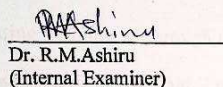 RMAshiru
Dr. R.M.Ashiru
(Internal Examiner)